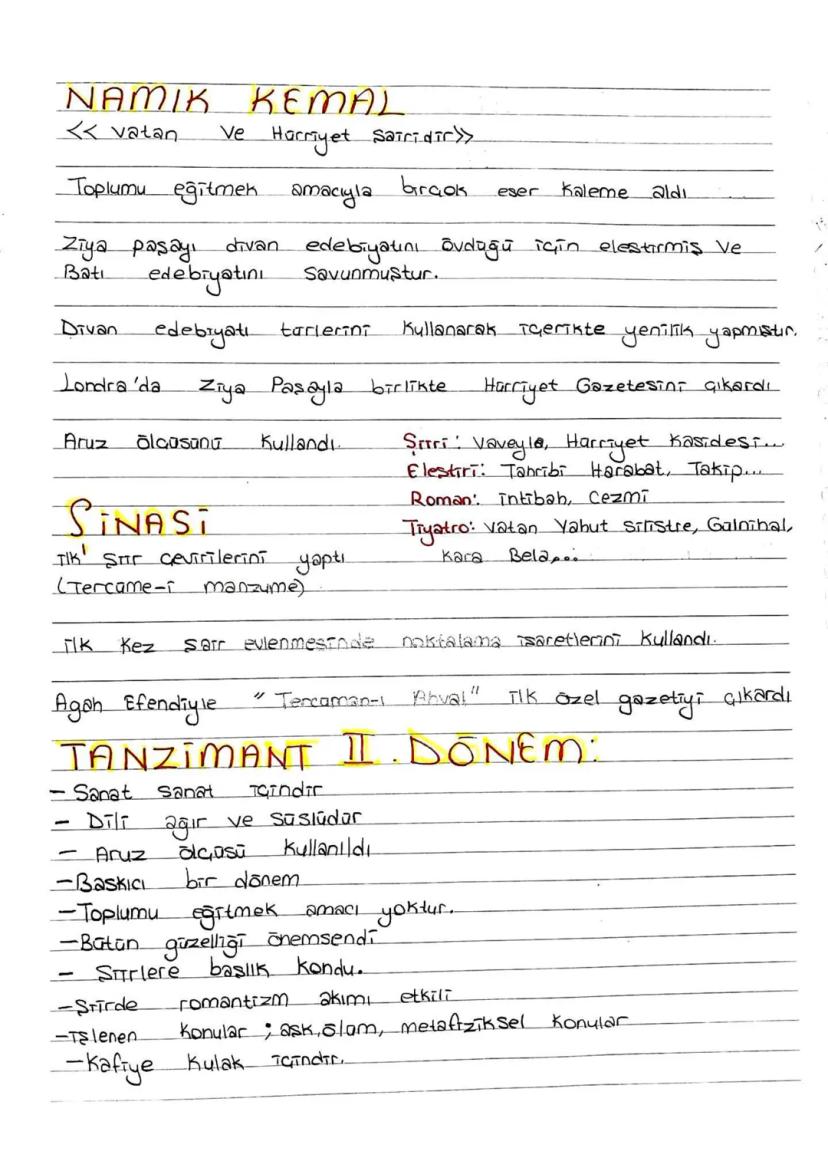 NAMIK KEMAL
<< Vatan ve Hürriyet Şairidir>>
Toplumu eğitmek amacıyla birçok eser kaleme aldı
Ziya paşayı divan edebiyatını övdüğü için eleştirmiş ve
Batı edebiyatını savunmuştur.
Divan edebiyatı türlerini kullanarak içerikte yenilik yapmıştır.
Londra'da Ziya Paşayla birlikte Hürriyet Gazetesini çıkardı
Aruz ölçüsünü kullandı.
Şiiri: Vaveyla, Hürriyet Kasidesi...
Eleştiri: Tahribi Harabat, Takip...
Roman: intibah, Cezmi
Tiyatro: Vatan Yahut silistre, Gülnihal,
Kara Bela...
ŞİNASİ
ilk' şiir çevirilerini yaptı
(Tercüme-i manzume)
ilk kez şair evlenmesinde noktalama işaretlerini kullandı.
Agah Efendiyle "Tercüman-ı Ahval" ilk özel gazetiyi çıkardı
TANZİMANT II. DÖNEM:
- Sanat sanat içindir
- Dili ağır ve süslüdür
- Aruz ölçüsü kullanıldı
- Baskıcı bir dönem
- Toplumu eğitmek amacı yoktur.
- Bütün güzelliği önemsendi
- Şiirlere başlık kondu.
- Şiirde romantizm akımı etkili
- işlenen konular ; aşk, ölüm, metafiziksel konular
- Kafiye kulak içindir.